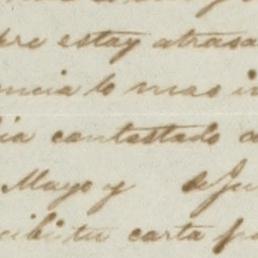 bre estay atrasa
encia lo mas in
ia contestado
Mayo y de Ju
cibi tu carta